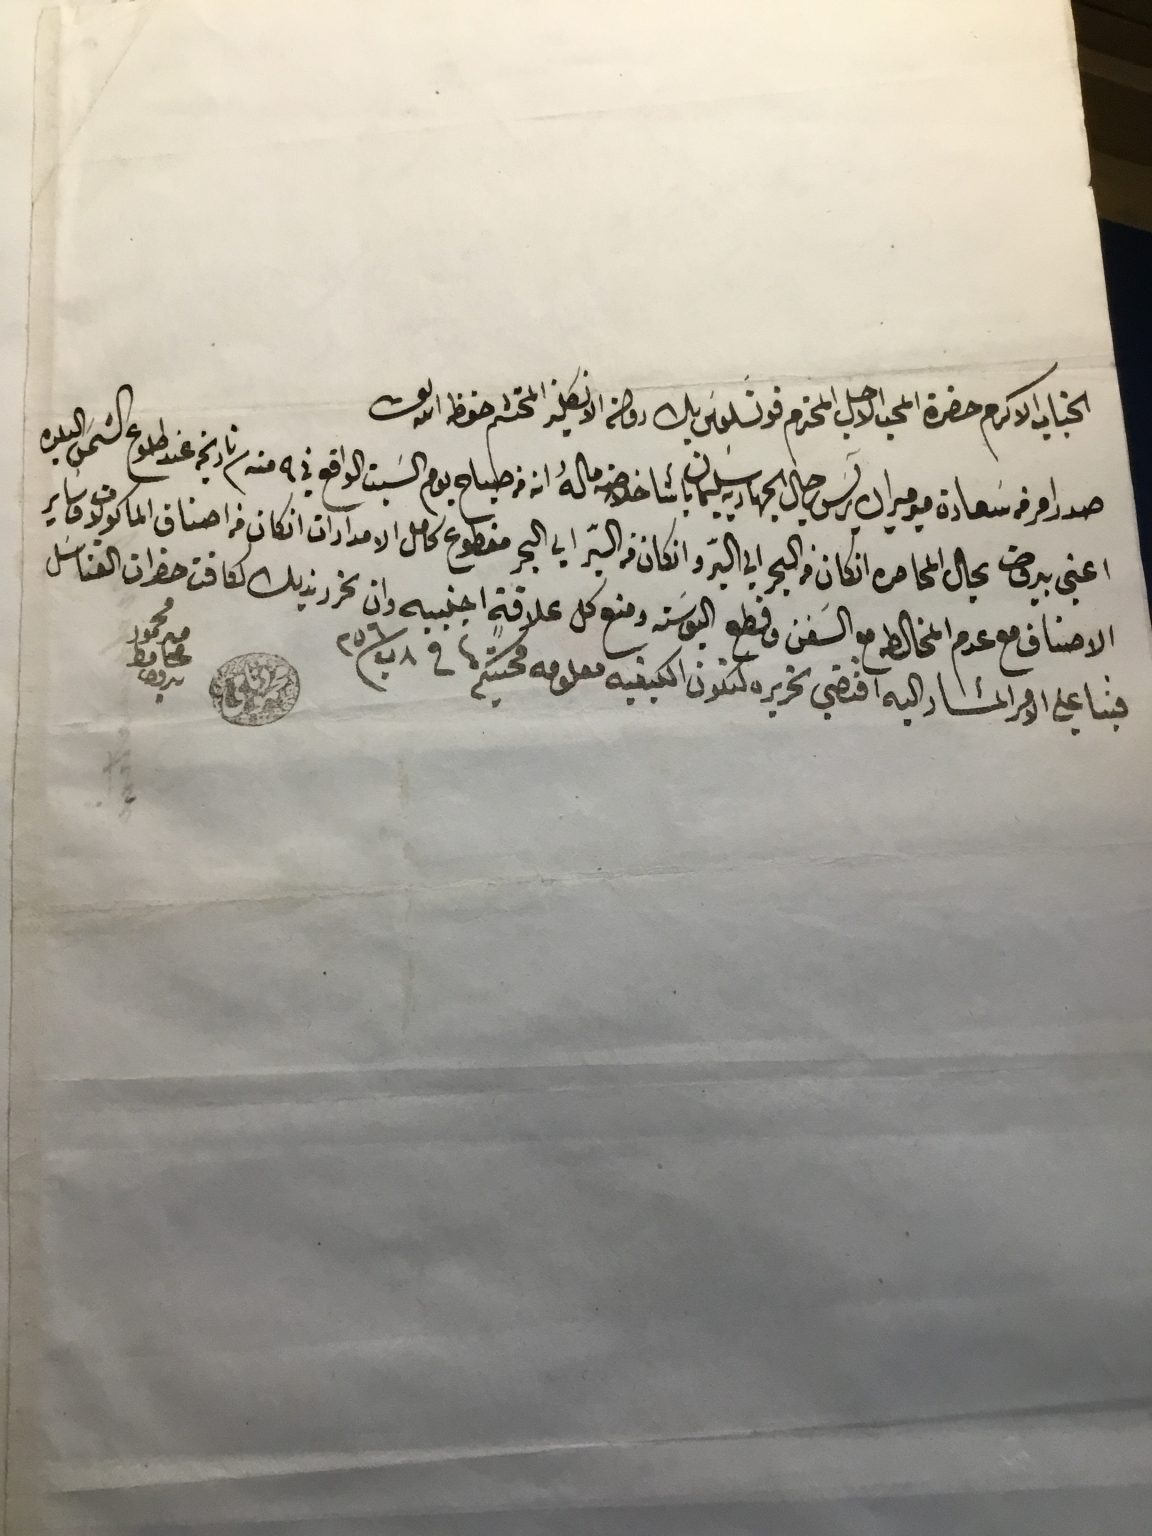 الجناب الاكرم حضرة المحب الاجل المحترم قونسلوس بيك دولة الانكليز المحتشم حفظه الله تعالى
صدر امر من سعادة ميرميران رئيس رجال الجهادية سليمان باشا خلاصة ماله انه من صباح يوم السبت الواقع في ٩ منه تاريخه عند طلوع الشمس البلده
اعني بيروت بحال المحاصره انكان من البحر الى البر وانكان من البر الى البحر مقطوع كامل الامدادات انكان من اصناف الماكولات وساير
الاصناف مع عدم المخالطه مع السفن وقطع البوسته ومنع كل علاقة اجنبيه وان نحرر بذلك لكافت حضرات القناسل
فبنا على الامر المشار اليه اقتضى تحريره لتكون الكيفيه معلومه محبتكم في ٨ ب ٢٥٦
محمود
محافظ
بيروت